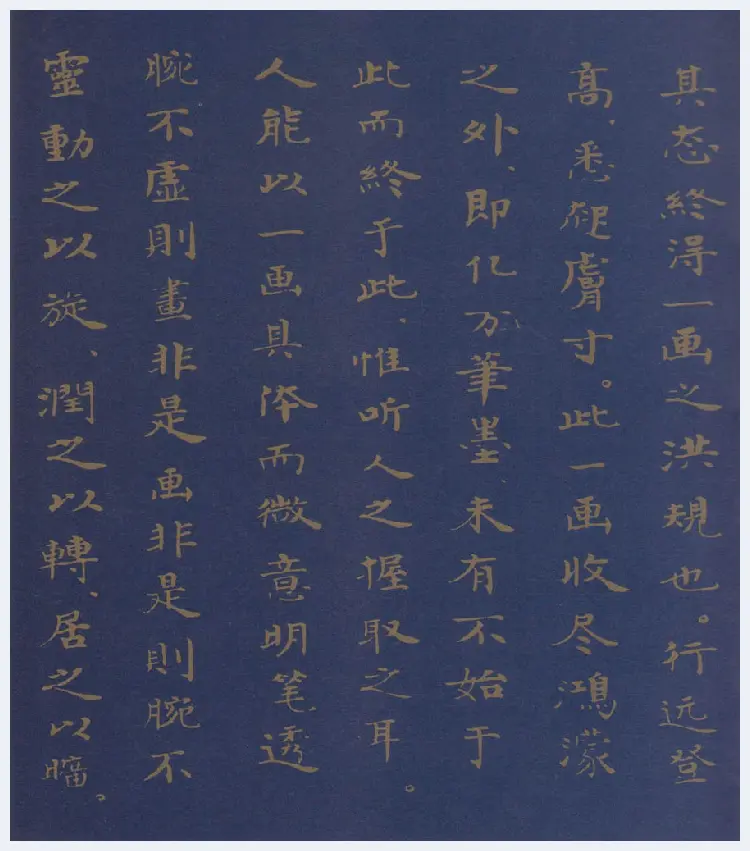 其态終淂一画之洪規也。行远登
高、悉起膚寸。此一画收尽鴻濛
之外、即亿万筆墨、未有不始于
此而終于此、惟听人之握取之耳。
人能以一画具体而微意明笔透
腕不虚則畫非是画非是則腕不
靈動之以旋、潤之以轉、居之以曠。